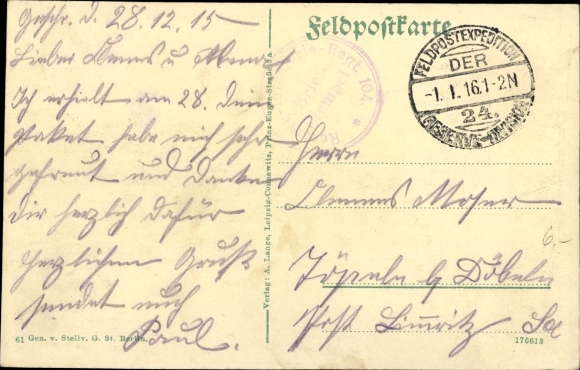 Geschr. d. 28.12.15
Lieber Clemens u
Ich erhielt am 28. Dein
Paket habe mich sehr
gefreut und danke
Dir herzlich dafür
Herzlichen Gruß
sendet euch
Paul.
Verlag: A. Lange, Leipzig-Connewitz, Prinz-Eugen-Straße
61 Gen. v. Stellv. G. St. Berlin.
Feldpostkarte
Regt. 104.
FELDPOSTEXPEDITION
DER
-1.1.16.1-2N
24.
RESERVE-DIVISION
Herrn
Clemens Moser
Töpeln b Döbeln
Post Limmritz Sa
6.-
176613